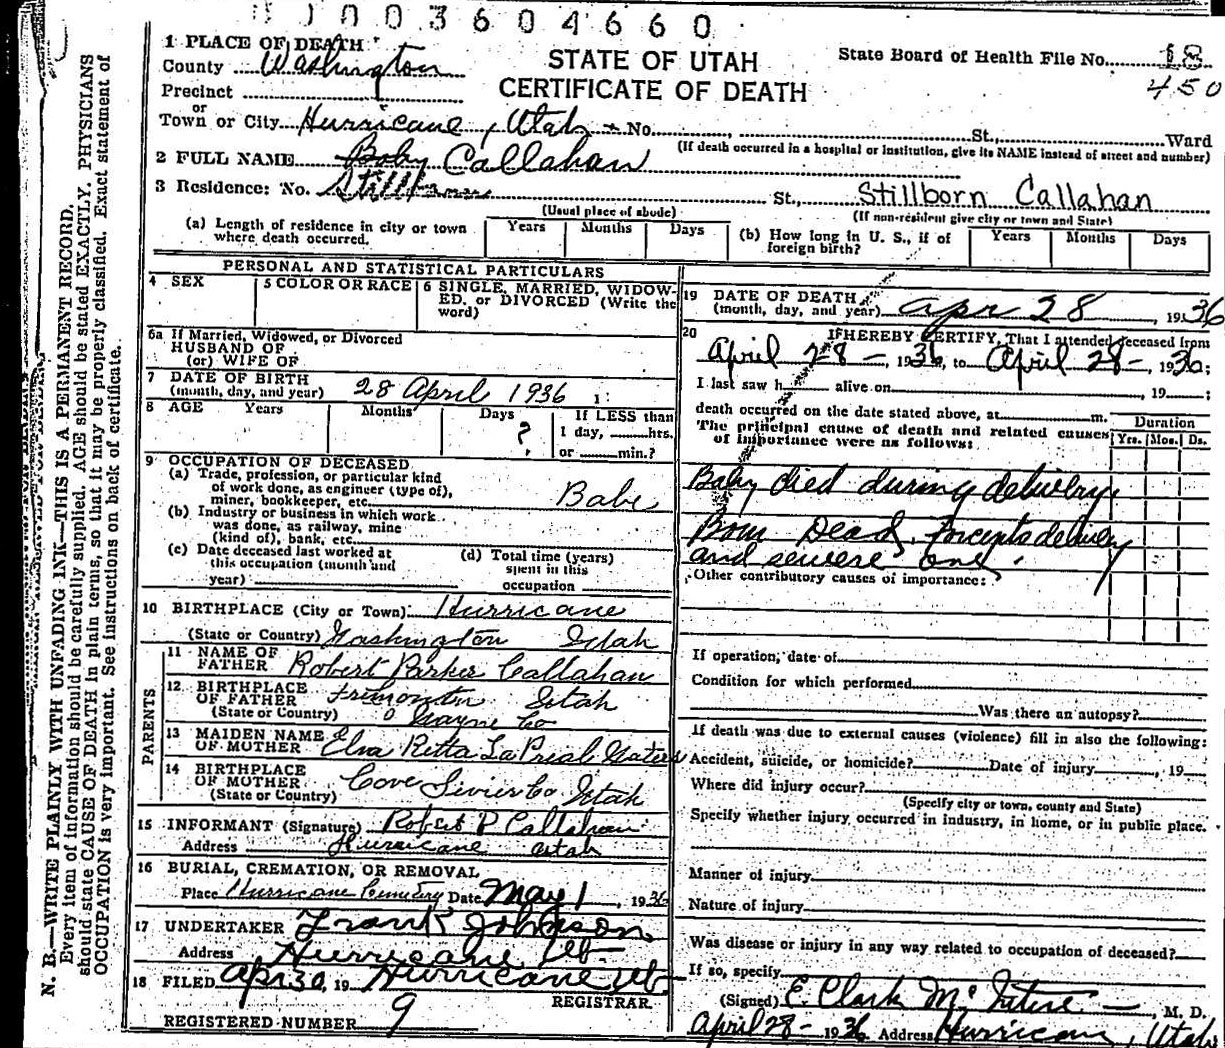 0003604660
1 PLACE OF DEATH
County Washington
STATE OF UTAH
CERTIFICATE OF DEATH
State Board of Health File No. 18
450
Precinct
or
Town or City Hurricane, Utah No. St., Ward
(If death occurred in a hospital or institution, give its NAME instead of street and number)
2 FULL NAME Baby Callahan
3 Residence: No. Stillborn St., Stillborn Callahan
(Usual place of abode) (If non-resident give city or town and State)
(a) Length of residence in city or town where death occurred. Years Months Days (b) How long in U. S., if of foreign birth? Years Months Days
PERSONAL AND STATISTICAL PARTICULARS
4 SEX 5 COLOR OR RACE 6 SINGLE, MARRIED, WIDOW-
ED, or DIVORCED (Write the
word)
6a If Married, Widowed, or Divorced
HUSBAND OF
(or) WIFE OF
7 DATE OF BIRTH
(month, day, and year) 28 April 1936
8 AGE Years Months Days ? If LESS than
1 day, hrs.
or min.?
9 OCCUPATION OF DECEASED
(a) Trade, profession, or particular kind
of work done, as engineer (type of),
miner, bookkeeper, etc. Babe
(b) Industry or business in which work
was done, as railway, mine
(kind of), bank, etc.
(c) Date deceased last worked at
this occupation (month and
year)
(d) Total time (years)
spent in this
occupation
10 BIRTHPLACE (City or Town) Hurricane
(State or Country) Washington Utah
PARENTS
11 NAME OF
FATHER Robert Parker Callahan
12 BIRTHPLACE
OF FATHER Fremont Utah
(State or Country) Wayne Co
13 MAIDEN NAME
OF MOTHER Elva Retta LaPreal
14 BIRTHPLACE
OF MOTHER Cove Sevier Co Utah
(State or Country)
15 INFORMANT (Signature) Robert P Callahan
Address Hurricane Utah
16 BURIAL, CREMATION, OR REMOVAL
Place Hurricane Cemetery Date May 1, 1936
17 UNDERTAKER Frank Johnson
Address Hurricane Ut.
18 FILED Apr 30, 19 Hurricane Ut
REGISTRAR.
REGISTERED NUMBER 9
19 DATE OF DEATH
(month, day, and year) Apr 28, 1936
20 I HEREBY CERTIFY, That I attended deceased from
April 28-, 1936, to April 28-, 1936;
I last saw h alive on , 19 ;
death occurred on the date stated above, at m.
The principal cause of death and related causes
of importance were as follows:
Duration
Yrs. Mos. Ds.
Baby died during delivery
Born Dead. Forceps delivery
and severe one.
Other contributory causes of importance:
If operation, date of
Condition for which performed
Was there an autopsy?
If death was due to external causes (violence) fill in also the following:
Accident, suicide, or homicide? Date of injury , 19
Where did injury occur?
(Specify city or town, county and State)
Specify whether injury occurred in industry, in home, or in public place.
Manner of injury
Nature of injury
Was disease or injury in any way related to occupation of deceased?
If so, specify
(Signed) E. Clark McIntire, M. D.
April 28- 1936 Address Hurricane, Utah
N. B.—WRITE PLAINLY WITH UNFADING INK—THIS IS A PERMANENT RECORD.
Every item of information should be carefully supplied. AGE should be stated EXACTLY. PHYSICIANS
should state CAUSE OF DEATH in plain terms, so that it may be properly classified. Exact statement of
OCCUPATION is very important. See instructions on back of certificate.